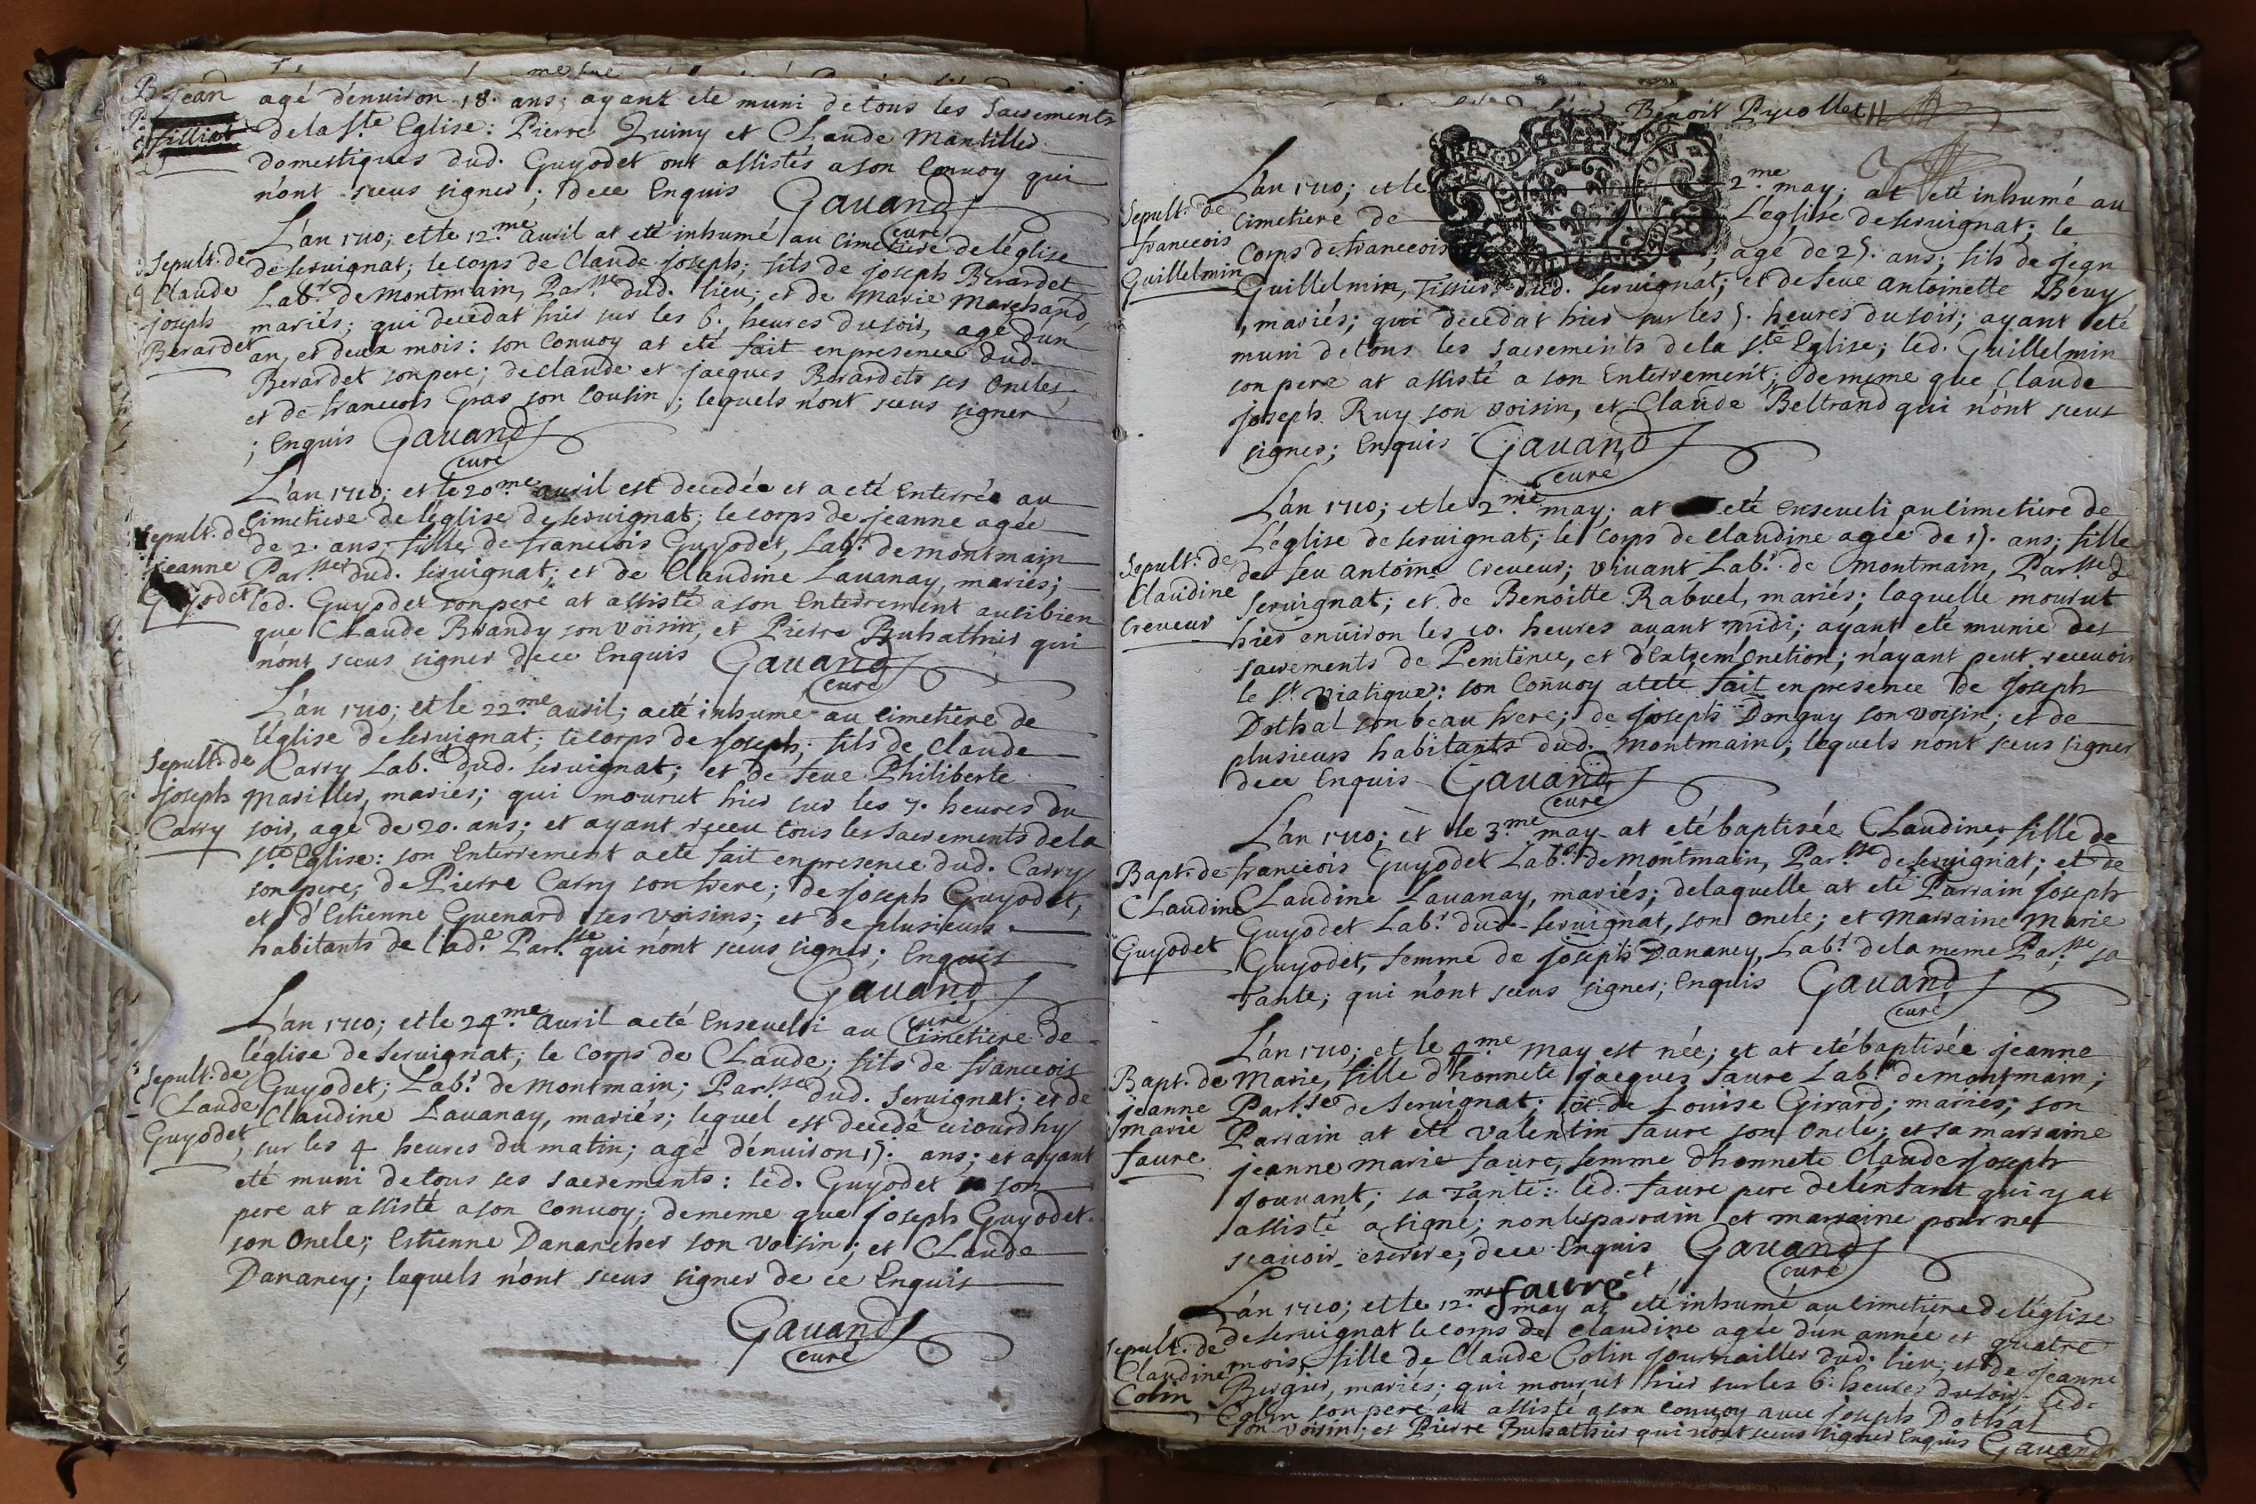 Jean
filliat
agé d'enuiron 18. ans; ayant eté muni de tous les Sacrements
de la Ste Eglise: Pierre Quiny et Claude Mantillet
domestiques dud. Guyodet ont assistés a son Conuoy qui
n'ont sceus signer; de ce Enquis Gauand
curé
L'an 1710; et le 12.me Auril at eté inhumé au Cimetiere de l'église
Sepult. de
Claude
joseph
Berardet
de seruignat; le corps de Claude joseph; fils de joseph Berardet
Labr. de montmain, Parsse dud. lieu; et de Marie Marchand,
mariés; qui decedat hier sur les 6. heures du soir, agé d'un
an, et deux mois: son Conuoy at eté fait en presence dud.
Berardet son pere; de claude et jacques Berardets ses Oncles,
et de francois Gras son Cousin; lequels n'ont sceus signer
; Enquis Gauand
curé
L'an 1710; et le 20.me auril est decedée et a eté Enterrée au
Sepult. de
jeanne
Guyodet
Cimetiere de l'église de seruignat; le corps de jeanne agée
de 2. ans; fille de francois Guyodet, Labr. de montmain
Parsse dud. seruignat; et de Claudine Lauanay, mariés;
led. Guyodet son pere at assisté a son Enterrement aussi bien
que Claude Brandy son voisin, et Pierre Buhathier qui
n'ont sceus signer de ce Enquis Gauand
curé
L'an 1710; et le 22.me auril; a eté inhumé au Cimetiere de
l'église de seruignat; le corps de joseph; fils de Claude
Sepult. de
joseph
Carry
Carry Labr. dud. seruignat; et de feue Philiberte
Marillet, mariés; qui mourut hier sur les 7. heures du
soir, agé de 20. ans; et ayant receu tous les Sacrements de la
Ste Eglise: son Enterrement a eté fait en presence dud. Carry
son pere; de Pierre Carry son frere; de joseph Guyodet,
et d'Estienne Guenard ses voisins; et de plusieurs
habitants de lad.e Parsse qui n'ont sceus signer; Enquis
Gauand
curé
L'an 1710; et le 24.me Auril a eté Enseueli au Cimetiere de
l'église de seruignat; le Corps de Claude; fils de francois
Sepult. de
Claude
Guyodet
Guyodet; Labr. de montmain; Parsse dud. seruignat; et de
Claudine Lauanay, mariés; lequel est decedé uiourdhy
sur les 4 heures du matin; agé d'enuiron 15. ans; et ayant
eté muni de tous ses sacrements: led. Guyodet son
pere at assisté a son Conuoy; de meme que joseph Guyodet
son Oncle; Estienne Danancher son voisin; et Claude
Danancy; lequels n'ont sceus signer de ce Enquis
Gauand
curé
Benoit Pycollet
L'an 1710; et le 2.me may; at eté inhumé au
Sepult. de
francois
Guillelmin
Cimetiere de L'église de seruignat; le
Corps de francois; agé de 25. ans; fils de Jean
Guillelmin, Tissier dud. seruignat; et de feue Antoinette Beuy
, mariés; qui decedat hier sur les 5. heures du soir; ayant eté
muni de tous les sacrements de la Ste Eglise; led. Guillelmin
son pere at assisté a son Enterrement; de meme que Claude
joseph Ruy son voisin, et Claude Beltrand qui n'ont sceus
signer; Enquis Gauand
curé
L'an 1710; et le 2.me may; at eté Enseueli au Cimetiere de
L'église de seruignat; le Corps de Claudine agée de 15. ans; fille
Sepult. de
Claudine
Creueur
de feu Antoine Creueur; viuant Labr. de Montmain, Parsse de
Seruignat; et de Benoitte Rabuel, mariés; laquelle mourut
hier enuiron les 10. heures auant midi; ayant eté munie des
sacrements de Penitence, et d'Extrem'Onction; n'ayant peut receuoir
le St Viatique: son Conuoy at eté fait en presence de Joseph
Dothal son beau frere; de joseph Danguy son voisin; et de
plusieurs habitants dud. Montmain; lequels n'ont sceus signer
de ce Enquis Gauand
curé
L'an 1710; et le 3.me may at eté baptisée Claudine, fille de
Bapt. de
Claudine
Guyodet
francois Guyodet Labr. de montmain, Parsse de seruignat; et de
Claudine Lauanay, mariés; de laquelle at eté Parrain joseph
Guyodet Labr. dud. seruignat, son Oncle; et Marraine Marie
Guyodet, femme de joseph Danancy, Labr. de la meme Parsse sa
Tante; qui n'ont sceus signer; Enquis Gauand
curé
L'an 1710; et le 4.me may est née; et at eté baptisée jeanne
Bapt. de
jeanne
marie
faure
Marie, fille d'honnete jacques faure Labr. de montmain;
Parsse de Seruignat; et de Louise Girard; mariés; son
Parrain at eté Valentin faure son Oncle; et sa marraine
jeanne marie faure, femme d'honnete Claude joseph
jouuant; sa Tante: led. faure pere de l'enfant qui y at
assisté a signé; non les parrain et marraine pour ne
scauoir escrire; de ce Enquis Gauand
curé
faure
L'an 1710; et le 12.me may at eté inhumé au Cimetiere de l'église
Sepult. de
Claudine
Colin
de seruignat le corps de Claudine agée d'un année et quatre
mois, fille de Claude Colin journaillier dud. lieu; et de jeanne
Bergier, mariés; qui mourut hier sur les 6. heures du soir; led.
Colin son pere at assisté a son Conuoy auec joseph Dothal
son voisin; et Pierre Buhathier qui n'ont sceus signer Enquis Gauand